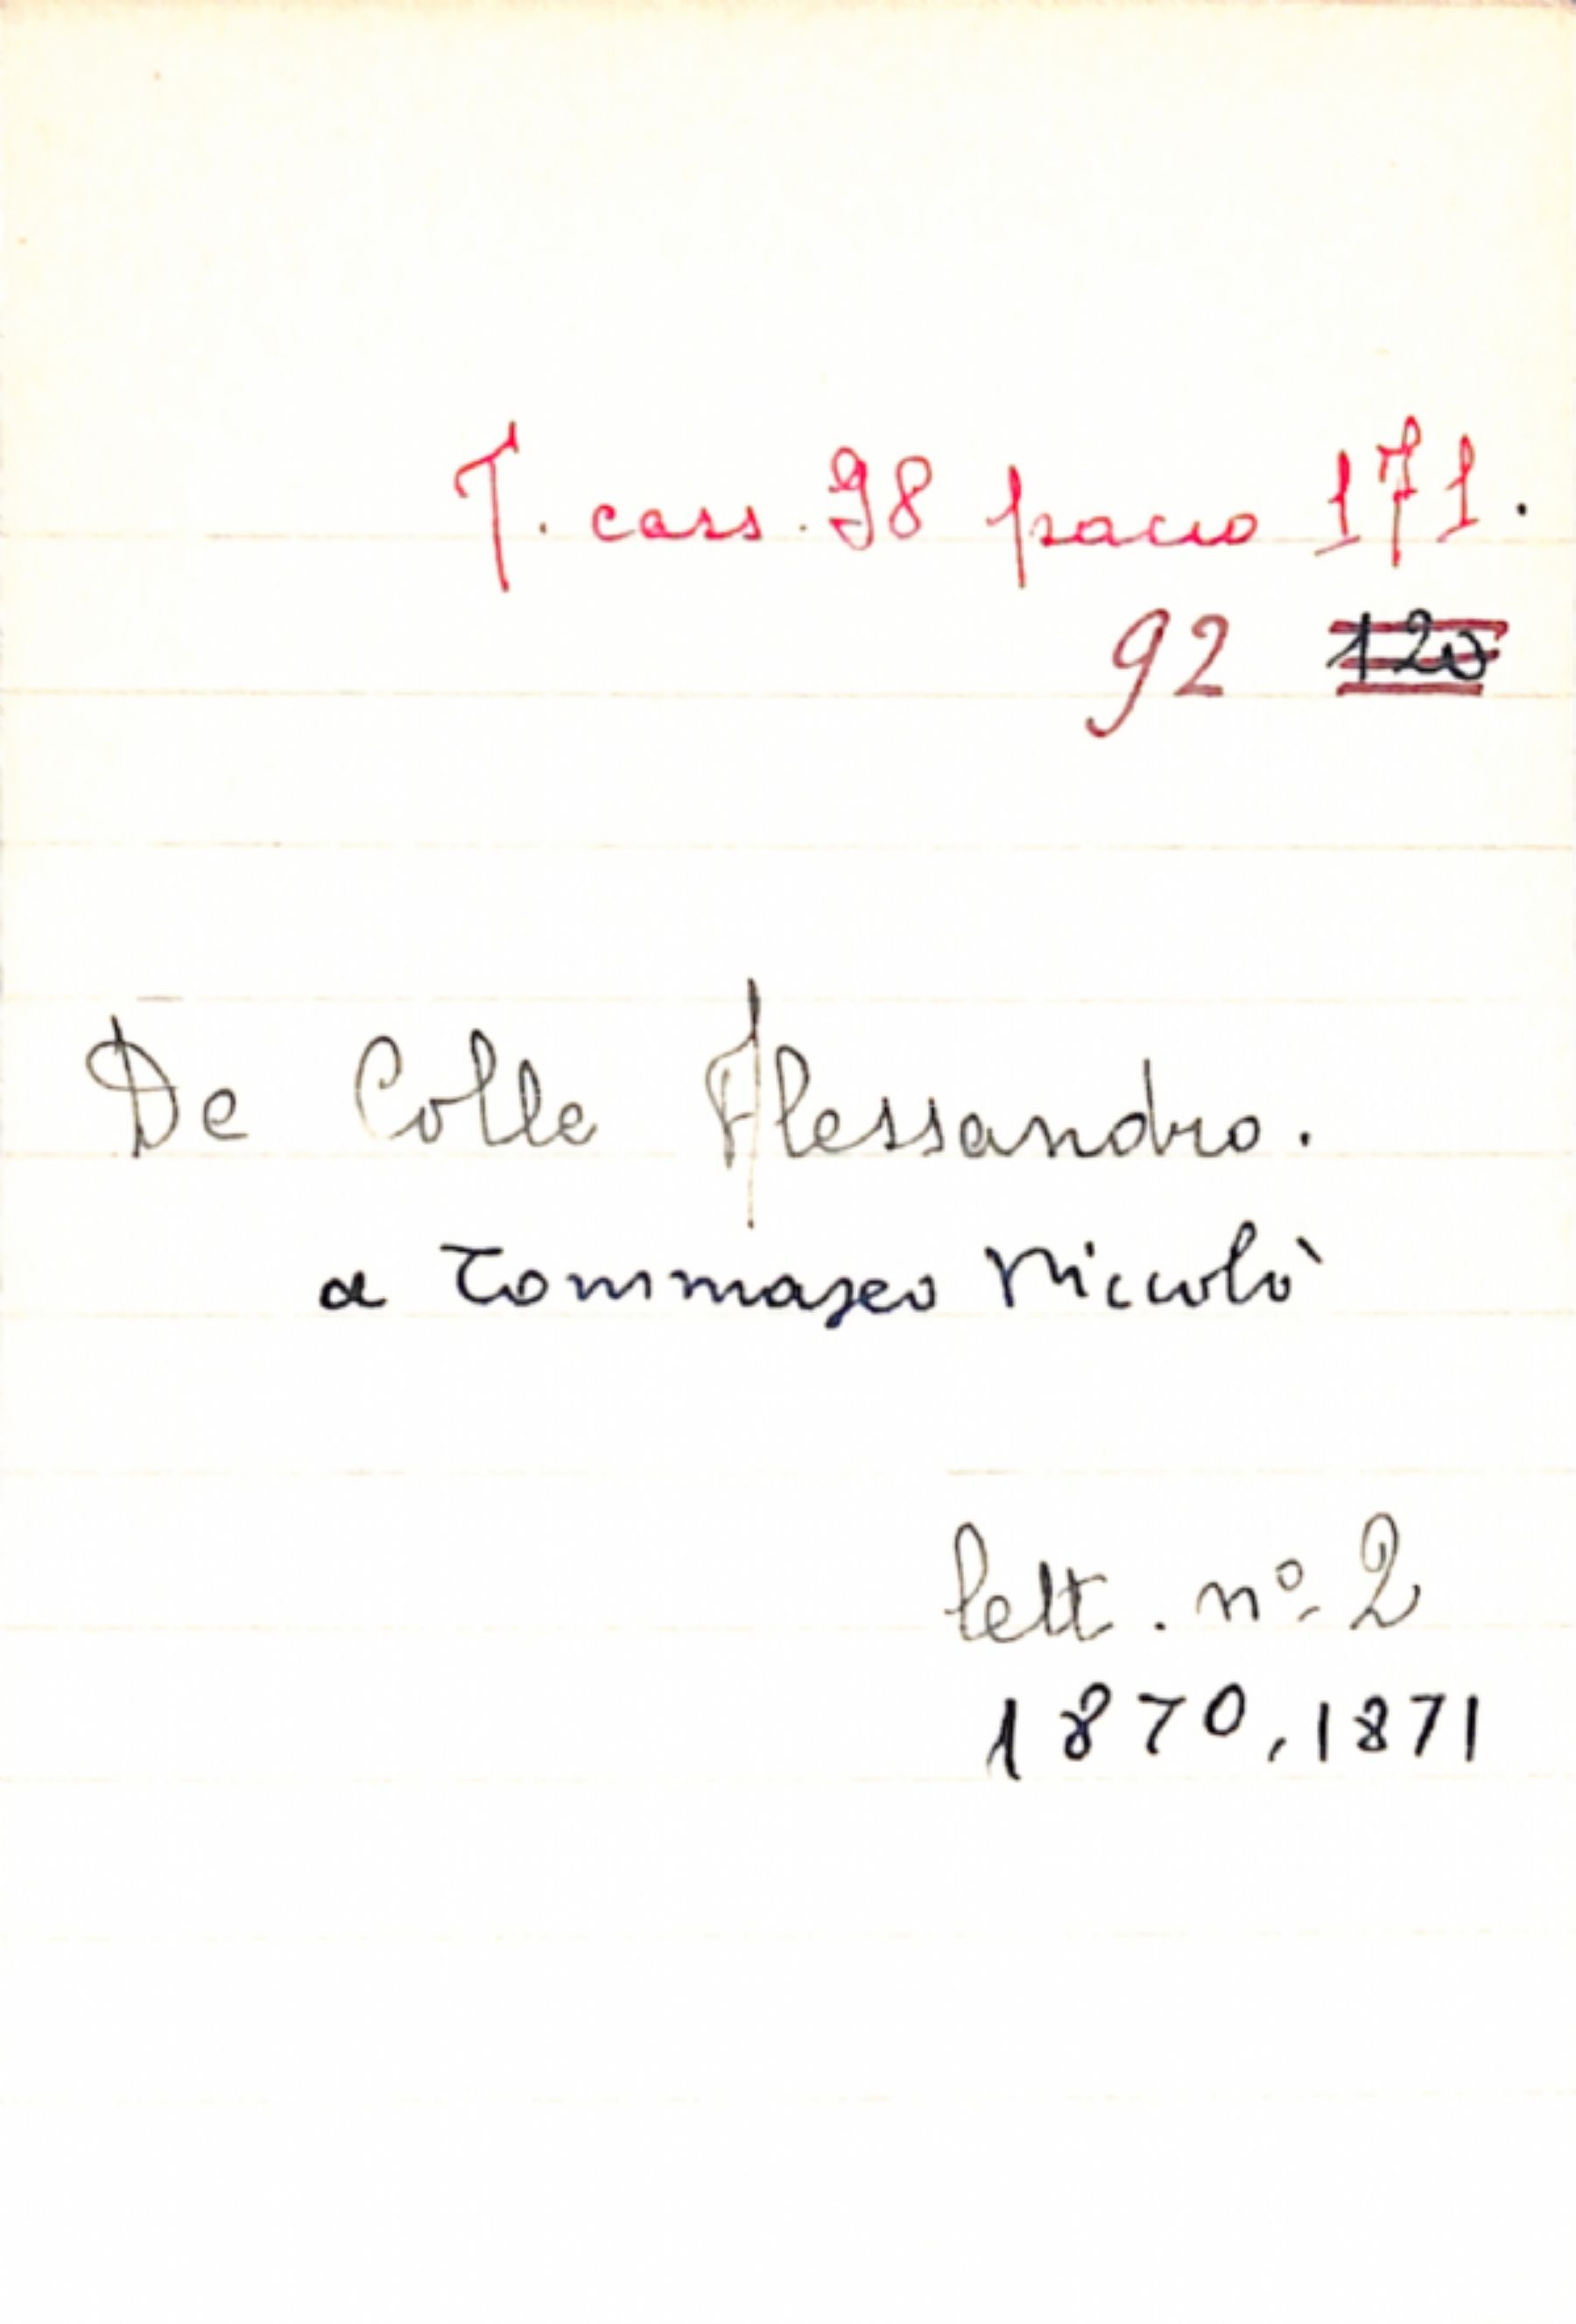 T. cass. 98 pacco 171.
92 120
De Colle Alessandro.
a Tommaseo Niccolò
lett. nº 2
1870, 1871